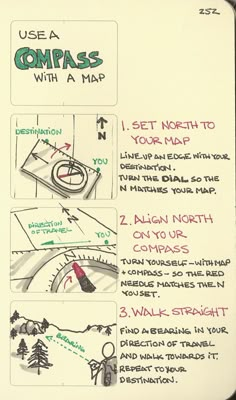 252
USE A
COMPASS
WITH A MAP
DESTINATION
N
YOU
1. SET NORTH TO
YOUR MAP
LINE UP AN EDGE WITH YOUR
DESTINATION.
TURN THE DIAL SO THE
N MATCHES YOUR MAP.
DIRECTION
OF TRAVEL
YOU
N
2. ALIGN NORTH
ON YOUR
COMPASS
TURN YOURSELF - WITH MAP
+ COMPASS - SO THE RED
NEEDLE MATCHES THE N
YOU SET.
BEARING
3. WALK STRAIGHT
FIND A BEARING IN YOUR
DIRECTION OF TRAVEL
AND WALK TOWARDS IT.
REPEAT TO YOUR
DESTINATION.